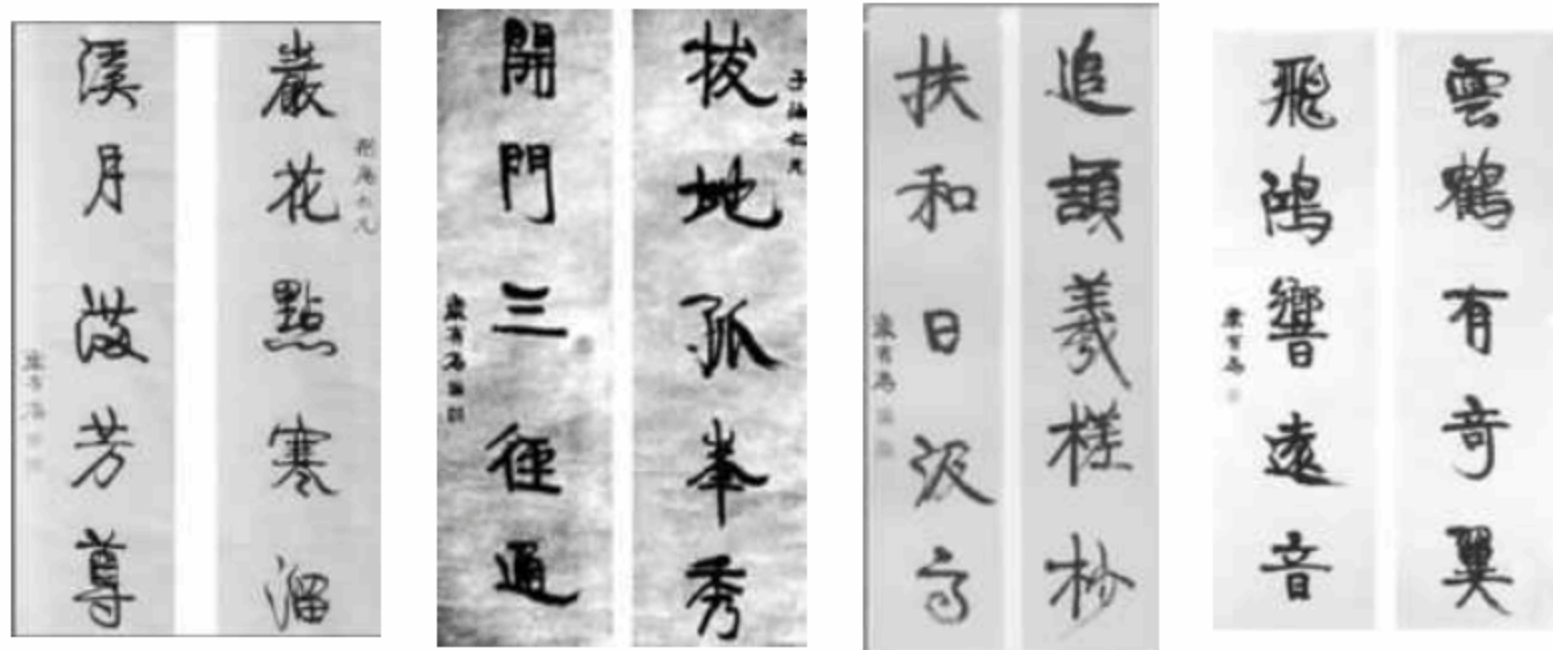 巖花點寒溜
溪月芳尊
康有為
子仁兄
拔地孤峯秀
開門三徑通
康有為
追頡羲杪
扶和日汲
康有為
雲鶴有奇翼
飛鴻響遠音
康有為